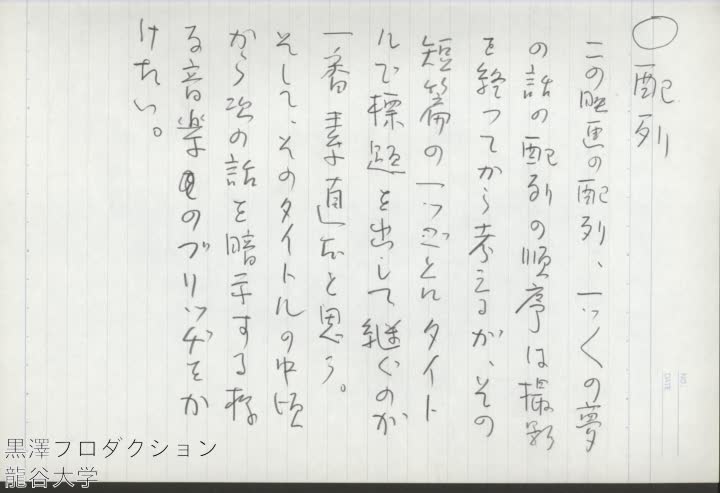 ○ 配列
この映画の配列、一つ一つの夢
の話の配列の順序は撮影
を終ってから考えるが、その
短篇の一つごとにタイト
ルで標題を出して継ぐのが
一番素直だと思う。
そして、そのタイトルの中頃
から次の話を暗示する様
る音楽のブリッヂをか
けたい。
黒澤プロダクション
龍谷大学